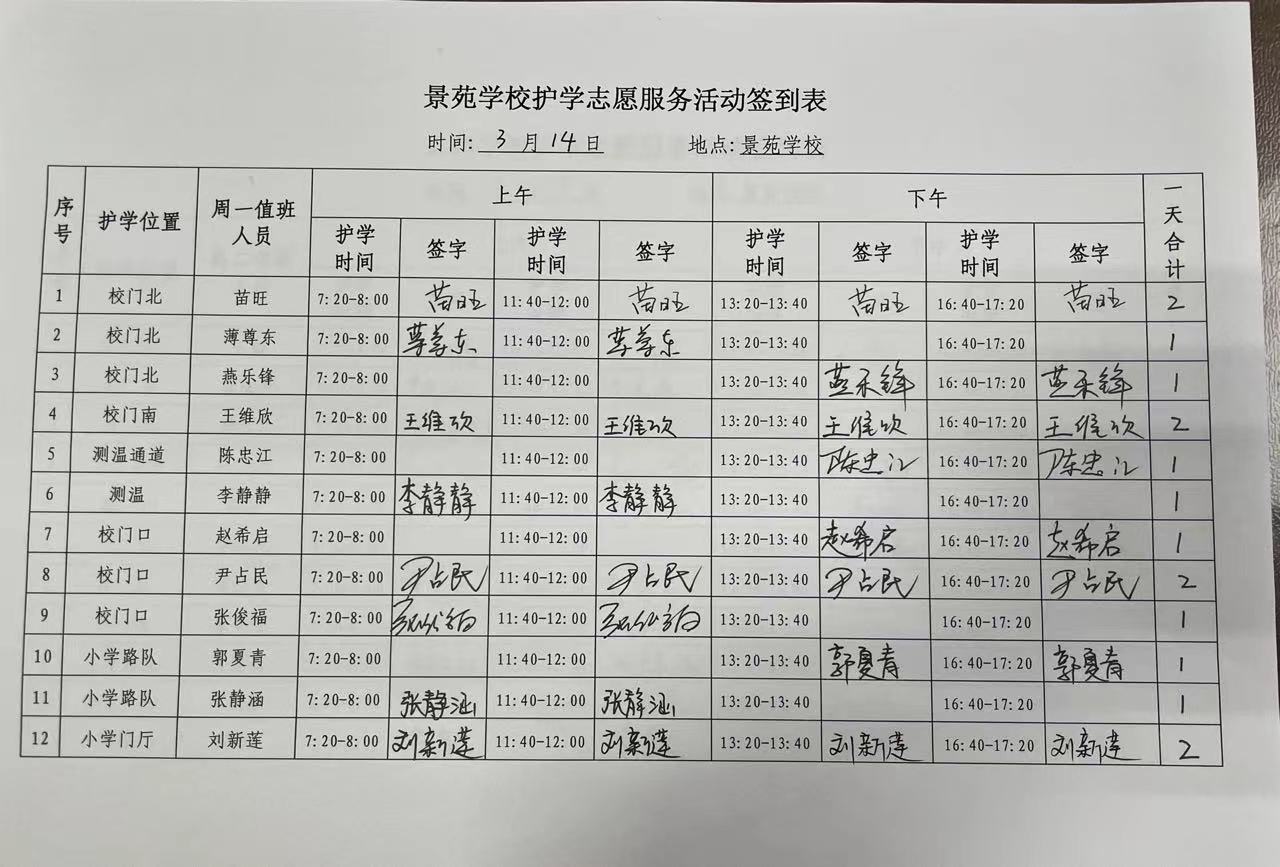 景苑学校护学志愿服务活动签到表
时间: 3 月 14 日 地点: 景苑学校
序号 护学位置 周一值班人员 上午 下午 一天合计
护学时间 签字 护学时间 签字 护学时间 签字 护学时间 签字
1 校门北 苗旺 7:20-8:00 苗旺 11:40-12:00 苗旺 13:20-13:40 苗旺 16:40-17:20 苗旺 2
2 校门北 薄尊东 7:20-8:00 薄尊东 11:40-12:00 薄尊东 13:20-13:40 16:40-17:20 1
3 校门北 燕乐锋 7:20-8:00 11:40-12:00 13:20-13:40 燕乐锋 16:40-17:20 燕乐锋 1
4 校门南 王维欣 7:20-8:00 王维欣 11:40-12:00 王维欣 13:20-13:40 王维欣 16:40-17:20 王维欣 2
5 测温通道 陈忠江 7:20-8:00 11:40-12:00 13:20-13:40 陈忠江 16:40-17:20 陈忠江 1
6 测温 李静静 7:20-8:00 李静静 11:40-12:00 李静静 13:20-13:40 16:40-17:20 1
7 校门口 赵希启 7:20-8:00 11:40-12:00 13:20-13:40 赵希启 16:40-17:20 赵希启 1
8 校门口 尹占民 7:20-8:00 尹占民 11:40-12:00 尹占民 13:20-13:40 尹占民 16:40-17:20 尹占民 2
9 校门口 张俊福 7:20-8:00 张俊福 11:40-12:00 张俊福 13:20-13:40 16:40-17:20 1
10 小学路队 郭夏青 7:20-8:00 11:40-12:00 13:20-13:40 郭夏青 16:40-17:20 郭夏青 1
11 小学路队 张静涵 7:20-8:00 张静涵 11:40-12:00 张静涵 13:20-13:40 16:40-17:20 1
12 小学门厅 刘新莲 7:20-8:00 刘新莲 11:40-12:00 刘新莲 13:20-13:40 刘新莲 16:40-17:20 刘新莲 2